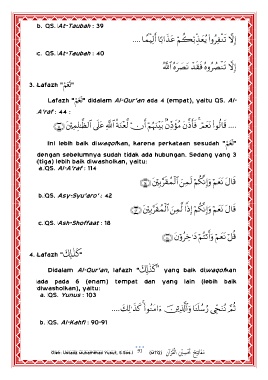 b. QS. At-Taubah : 39
إِلَّا تَنفِرُوا۟ يُعَذِّبْكُمْ عَذَابًا أَلِيمًا ....
c. QS. At-Taubah : 40
إِلَّا تَنصُرُوهُ فَقَدْ نَصَرَهُ ٱللَّهُ
3. Lafazh "نَعَمْ"
Lafazh "نَعَمْ" didalam Al-Qur'an ada 4 (empat), yaitu QS. Al-
A'raf : 44 :
.... قَالُوا۟ نَعَمْ ۚ فَأَذَّنَ مُؤَذِّنٌۢ بَيْنَهُمْ أَن لَّعْنَةُ ٱللَّهِ عَلَى ٱلظَّٰلِمِينَ
Ini lebih baik diwaqofkan, karena perkataan sesudah "نَعَمْ"
dengan sebelumnya sudah tidak ada hubungan. Sedang yang 3
(tiga) lebih baik diwasholkan, yaitu:
a. QS. Al-A'raf : 114
قَالَ نَعَمْ وَإِنَّكُمْ لَمِنَ ٱلْمُقَرَّبِينَ
b. QS. Asy-Syu'aro' : 42
قَالَ نَعَمْ وَإِنَّكُمْ إِذًا لَّمِنَ ٱلْمُقَرَّبِينَ
c. QS. Ash-Shoffaat : 18
قُلْ نَعَمْ وَأَنتُمْ دَٰخِرُونَ
4. Lafazh "كَذَٰلِكَ"
Didalam Al-Qur'an, lafazh "كَذَٰلِكَ" yang baik diwaqofkan
ada pada 6 (enam) tempat dan yang lain (lebih baik
diwasholkan), yaitu:
a. QS. Yunus : 103
ثُمَّ نُنَجِّى رُسُلَنَا وَٱلَّذِينَ ءَامَنُوا۟ ۚ كَذَٰلِكَ ....
b. QS. Al-Kahfi : 90-91
Oleh: Ustadz Muhammad Yusuf, S.Sos.I
(MTQ)